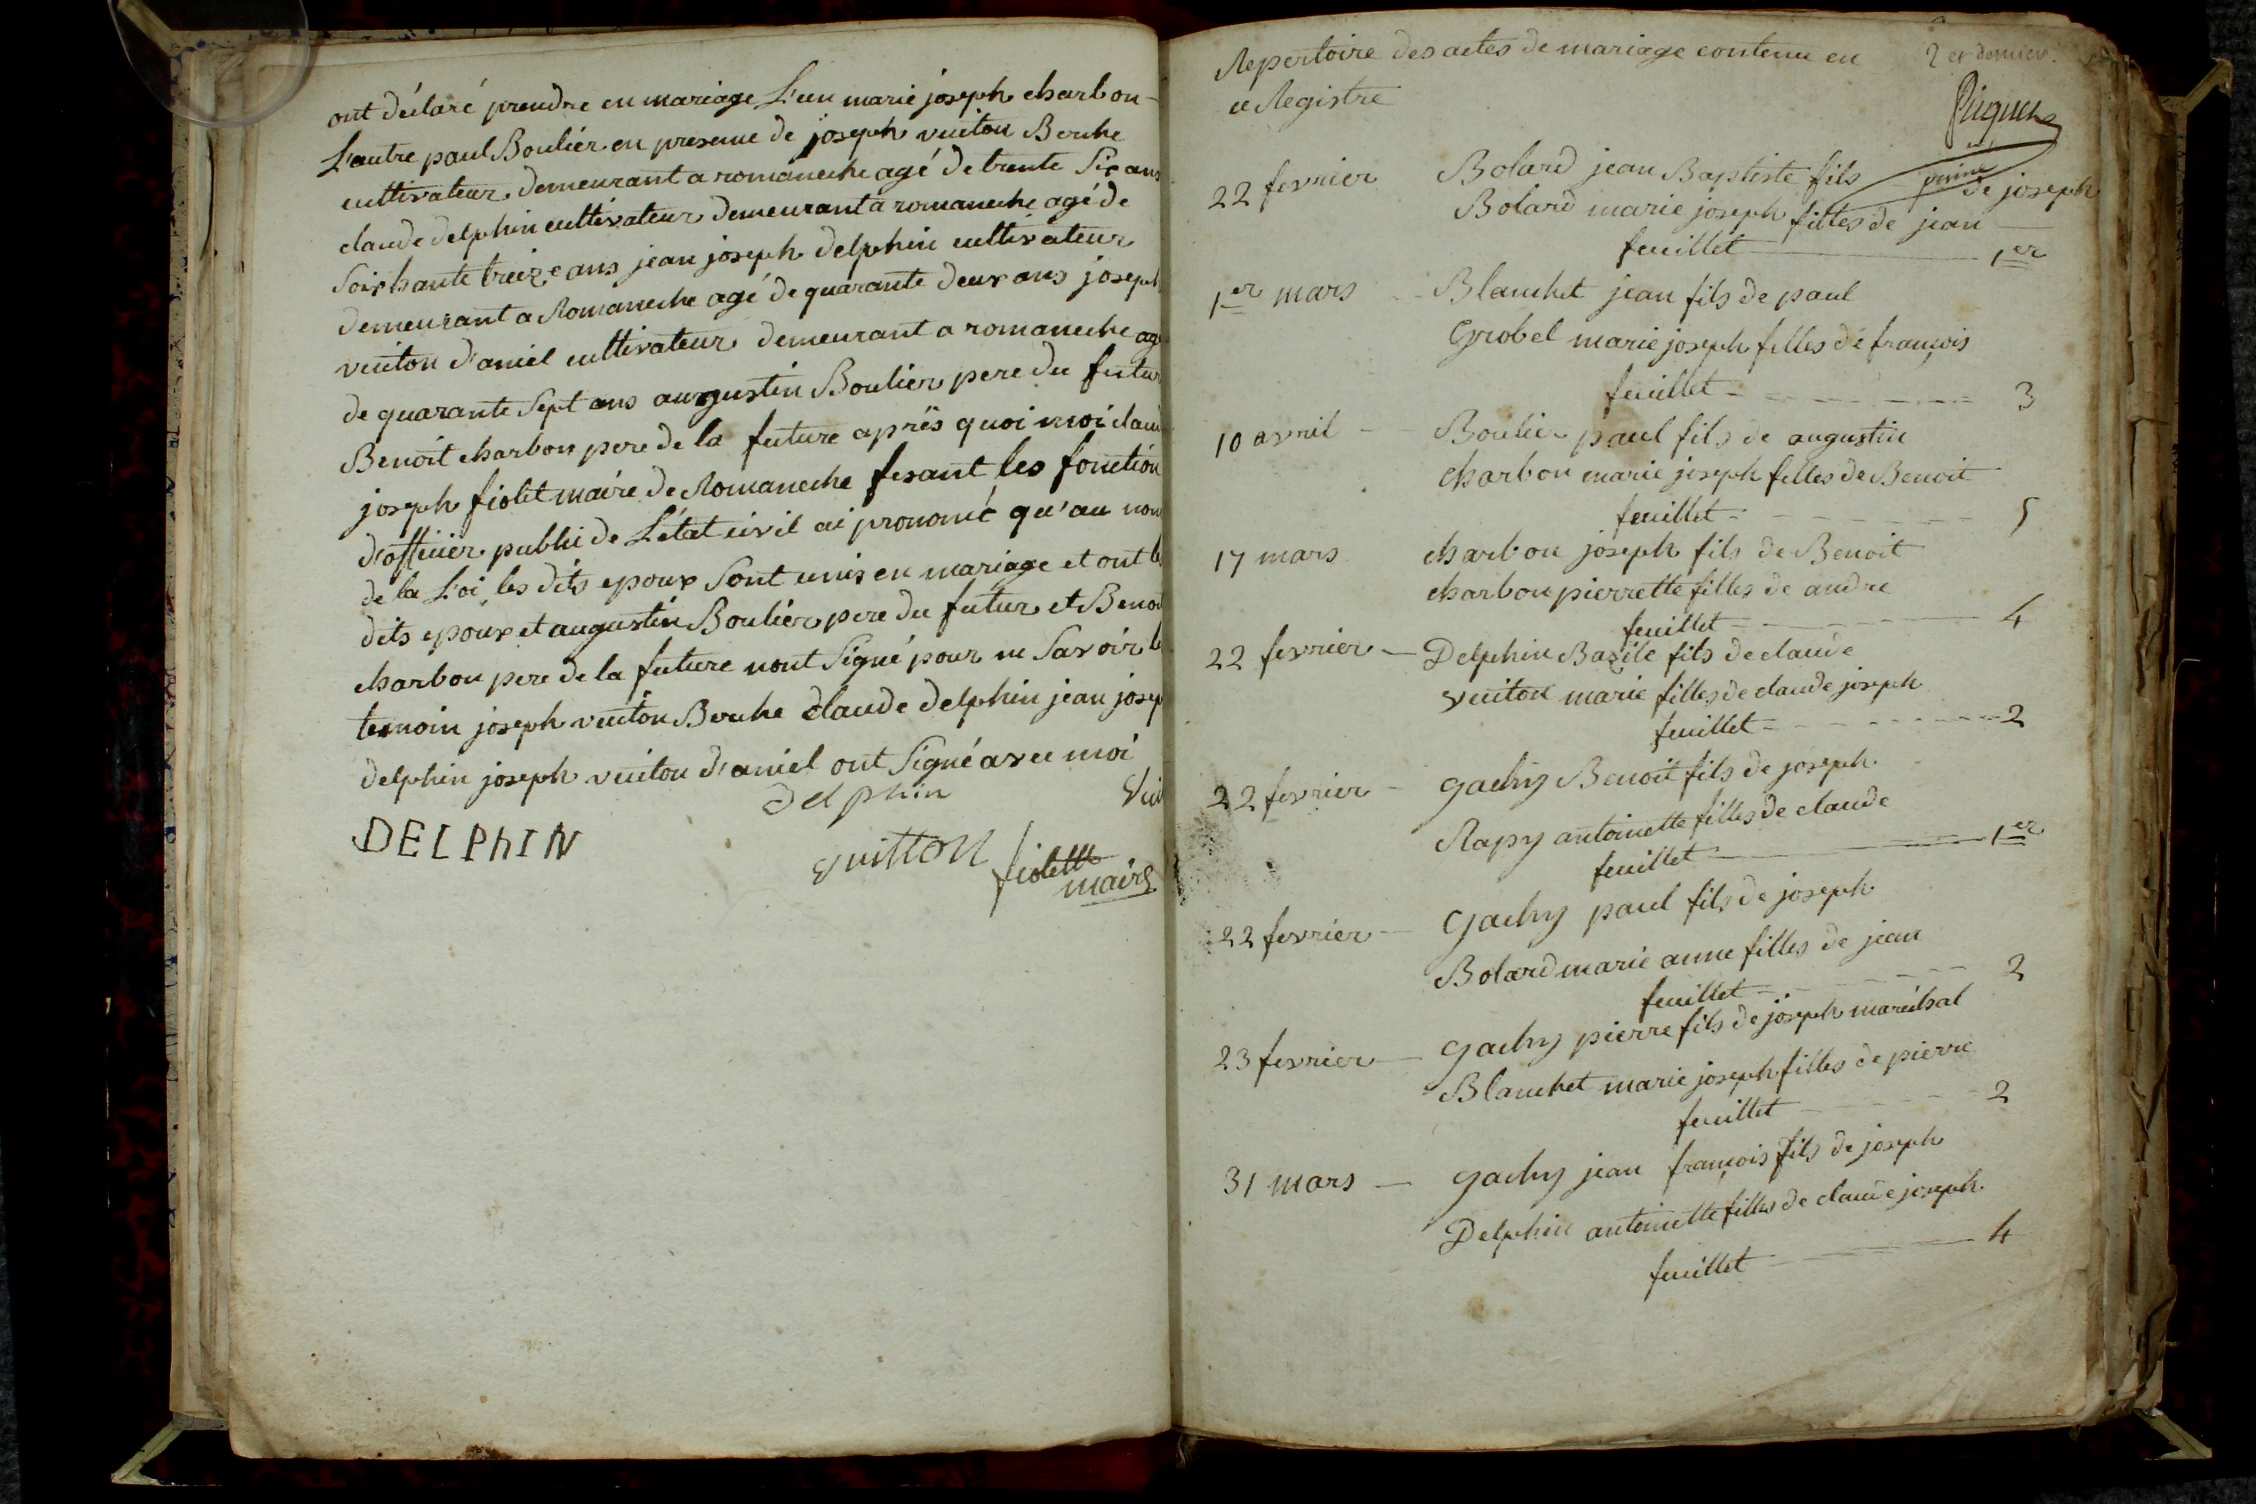 ont déclaré prendre en mariage L'un marie joseph charbon
L'autre paul Boulier en presence de joseph vuiton Berche
cultivateur demeurant a romaneche agé de trente Six ans
claude delphin cultivateur demeurant a romaneche agé de
Soixhante treize ans jean joseph delphin cultivateur
demeurant a Romaneche agé de quarante deux ans joseph
vuiton d'aniel cultivateur demeurant a romaneche ag
de quarante Sept ans augustin Boulier pere du futur
Benoit charbon pere de la future après quoi moi claud
joseph fiolet maire de Romaneche fesant les fonction
d'officier public de L'état civil ai prononcé qu'au nom
de la Loi les dits epoux Sont unis en mariage et ont le
dits epoux et augustin Boulier pere du futur et Benoi
charbon pere de la future nont Signé pour ne Savoir le
temoin joseph vuiton Berche claude delphin jean josep
delphin joseph vuiton d'aniel ont Signé avec moi
delphin Vui
DELPhIN
vuitton fiolet
maire
Repertoire des actes de mariage contenu en
ce Registre
2 et dernier
22 fevrier Bolard jean Baptiste fils de joseph
Bolard marie joseph filles de jean
feuillet 1er
1er mars Blanchet jean fils de paul
Grobel marie joseph filles de françois
feuillet 3
10 avril Boulier paul fils de augustin
charbon marie joseph filles de Benoit
feuillet 5
17 mars charbon joseph fils de Benoit
charbon pierrette filles de andre
feuillet 4
22 fevrier Delphin Bazile fils de claude
vuiton marie filles de claude joseph
feuillet 2
22 fevrier gachy Benoit fils de joseph
Rapy antoinette filles de claude
feuillet 1er
22 fevrier gachy paul fils de joseph
Bolard marie anne filles de jean
feuillet 2
23 fevrier gachy pierre fils de joseph maréchal
Blanchet marie joseph filles de pierre
feuillet 2
31 mars gachy jean françois fils de joseph
Delphin antoinette filles de claude joseph
feuillet 4